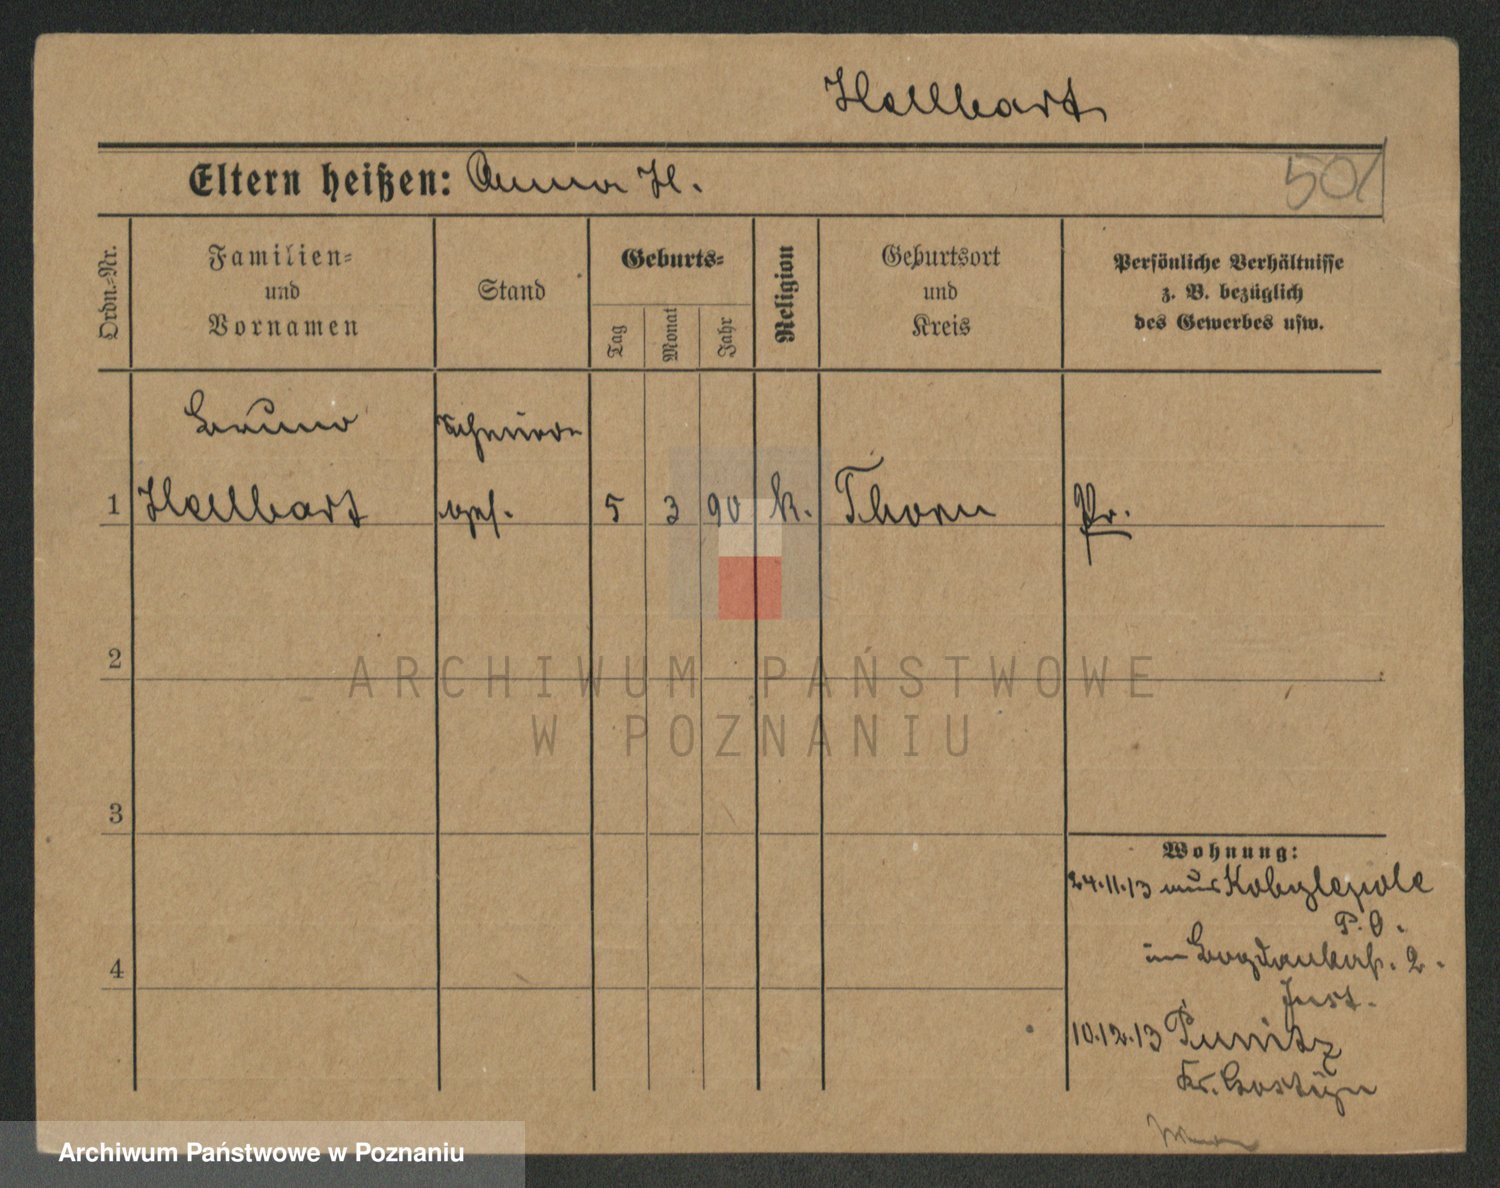 Hellbart
Eltern heißen: Anna H.
501
Ordn.-Nr.
Familien-
und
Vornamen
Stand
Geburts-
Tag
Monat
Jahr
Religion
Geburtsort
und
Kreis
Persönliche Verhältnisse
z. B. bezüglich
des Gewerbes usw.
Bruno
1 Hellbart
ges. 5 3 90 k. Thorn Pr.
2
ARCHIWUM PAŃSTWOWE
W POZNANIU
3
Wohnung:
24.11.13 aus Kobylepole
P. O.
4
in Bogdankastr. 2.
Just.
10.12.13 Punitz
Kr. Gostyn
Archiwum Państwowe w Poznaniu